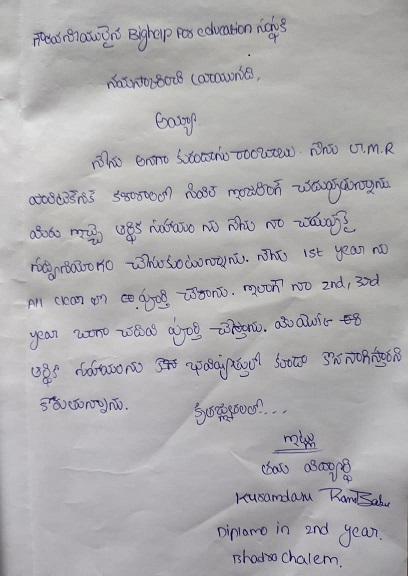 గౌరవనీయులైన Bighelp For education సంస్థకి
నమస్కరించి వ్రాయునది,
అయ్యా
నేను అనగా కుసందాను రాంబాబు. నేను V.M.R
పాలిటెక్నిక్ కళాశాలలో సివిల్ ఇంజనీరింగ్ చదువుతున్నాను
మీరు ఇచ్చే ఆర్థిక సహాయం ను నేను నా చదువుకై
సద్వినియోగం చేసుకుంటున్నాను. నేను 1st year ను
All clear లా పూర్తి చేశాను. ఇలాగే నా 2nd, 3rd
year బాగా చదివి పూర్తి చేస్తాను. మీ యొక్క ఈ
ఆర్థిక సహాయంను భవిష్యత్తులో కూడా కొనసాగిస్తారని
కోరుతున్నాను.
కృతజ్ఞతలతో...
ఇట్లు
తమ విద్యార్థి
Kusamdanu RamBabu
Diploma in 2nd year.
Bhadrachalem.